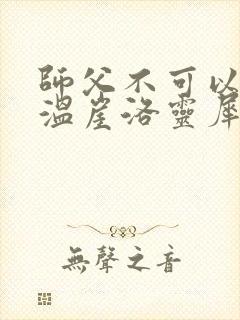 師父不可以
溫崖洛靈犀
無聲之音